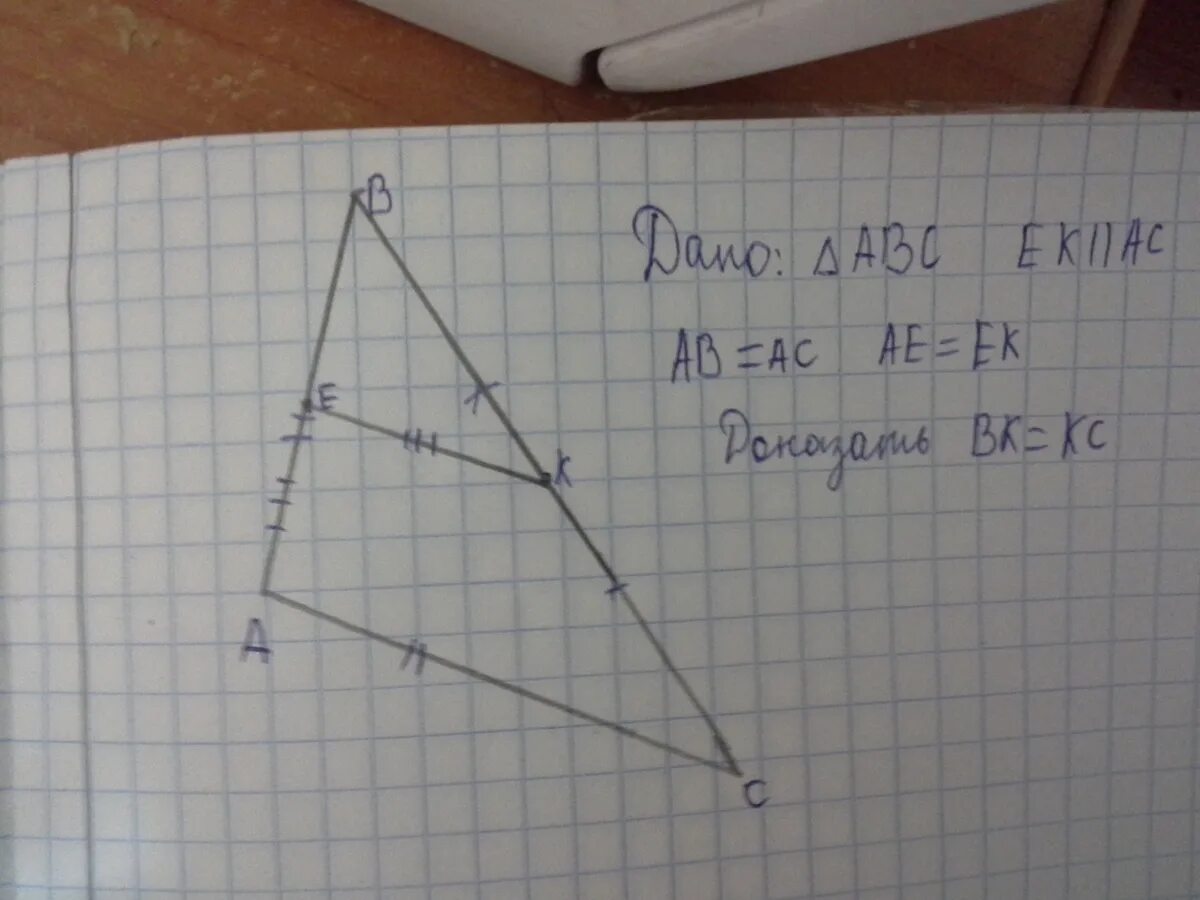 B
Дано: △ABC EK||AC
AB=AC AE=EK
E
Доказать BK=KC
K
A
C